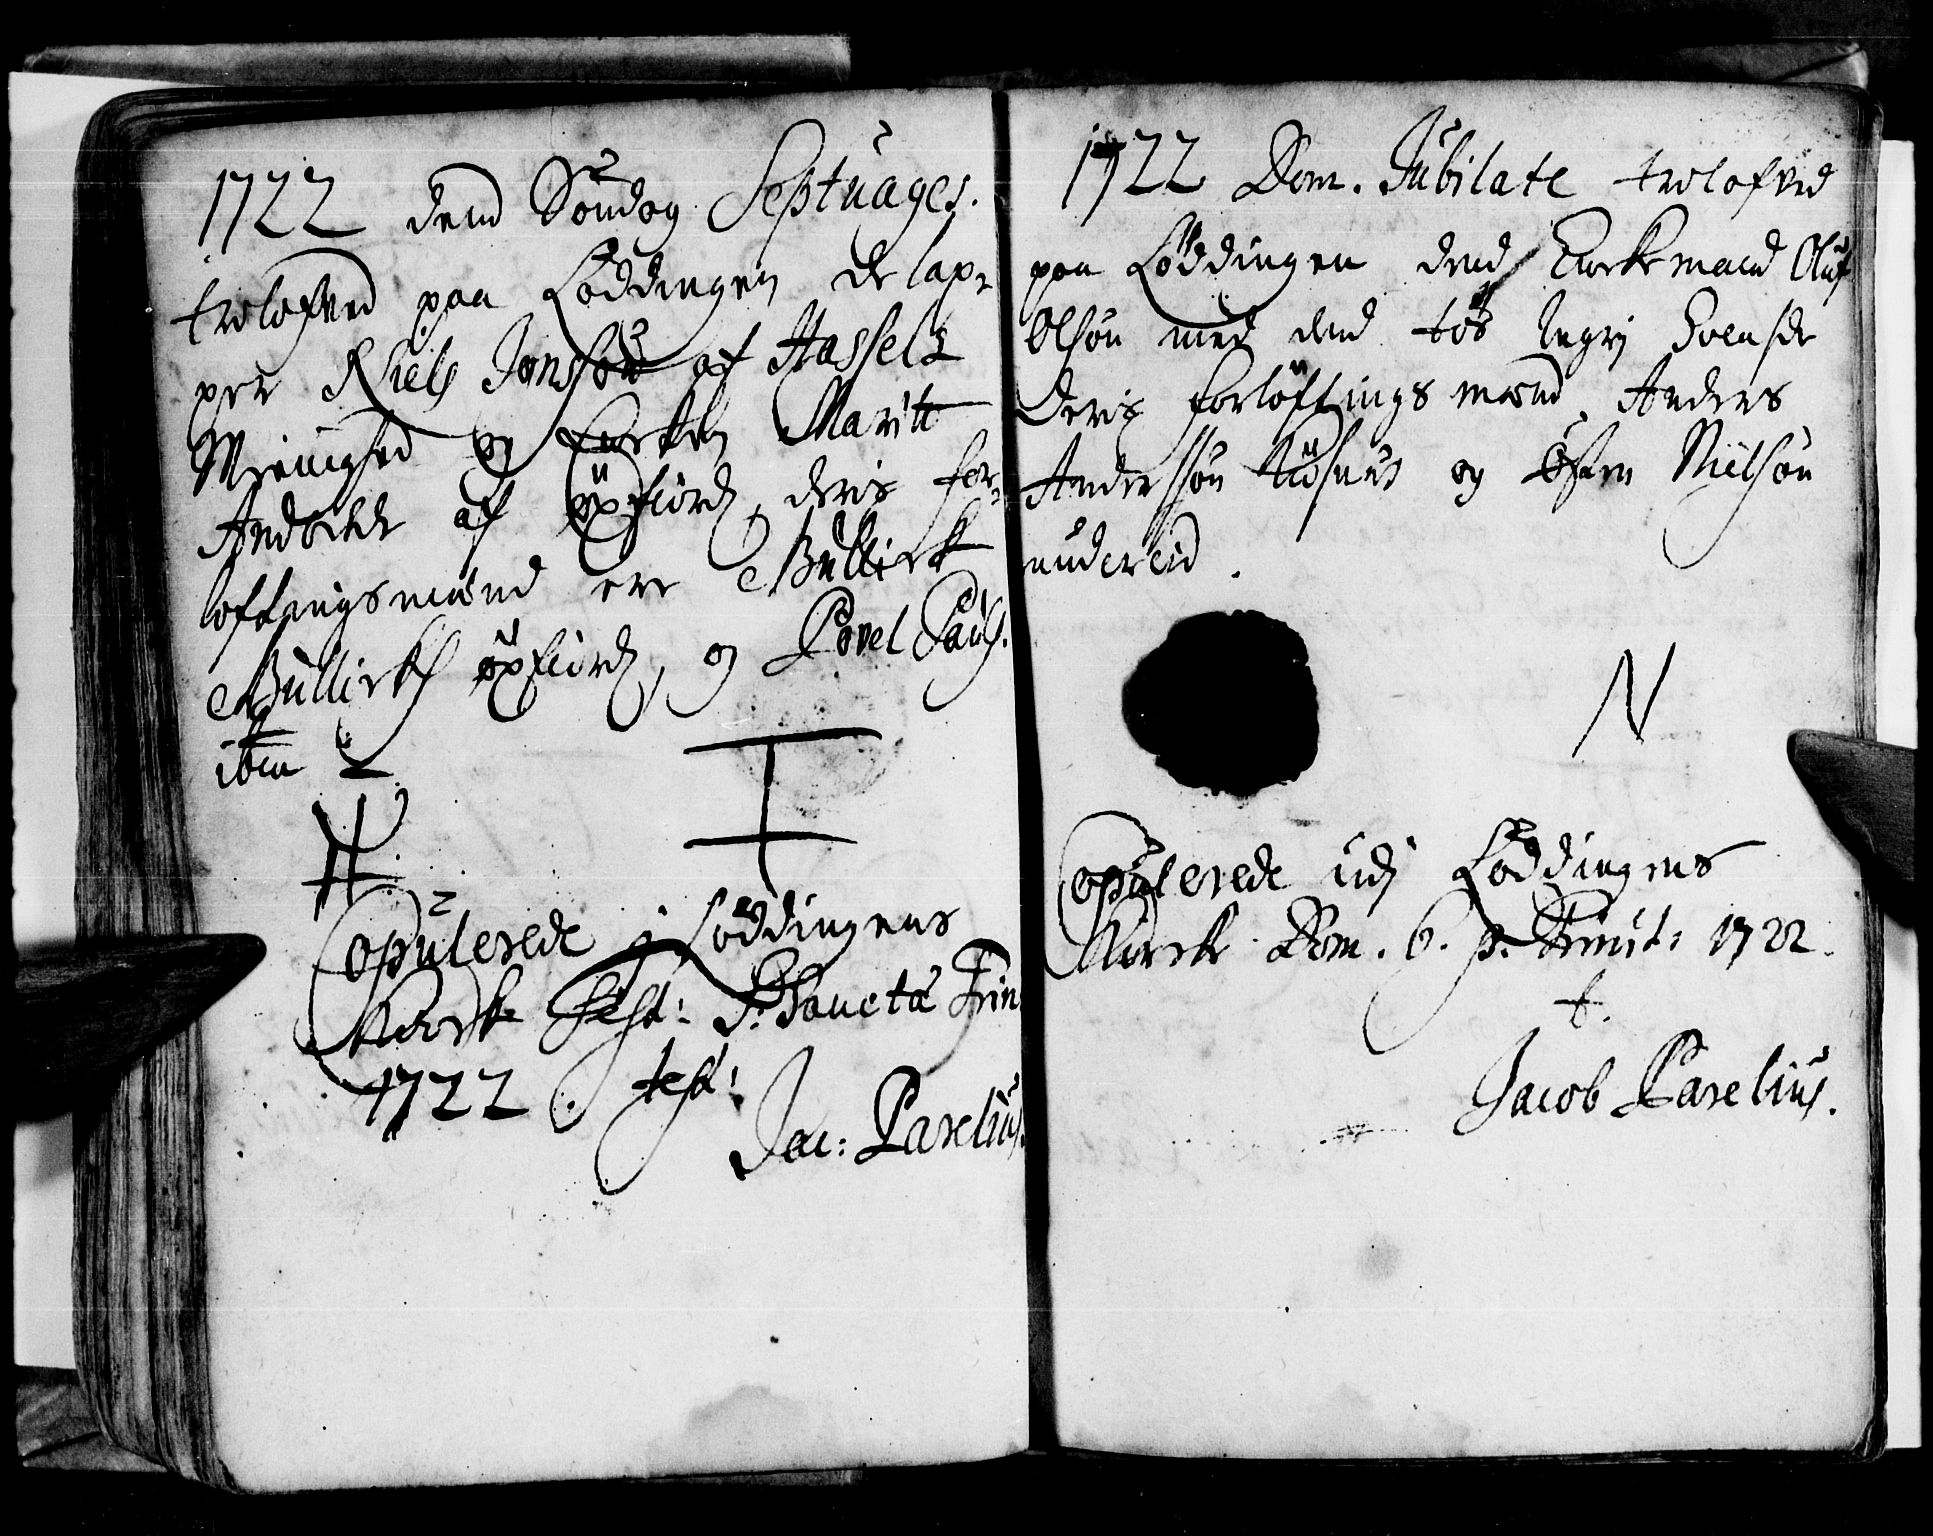 1722 dend Søndag Septuages.
trolofved paa Løddingen de lap-
per Niels Jonssøn af Hassels
Meenighed og Encken Maritt
Andersdr af øxfiord, deris for-
loftingsmænd ere Bullierk
Bullierks øxfiord, og Povel Pauls.
ibm
Copulerede i Løddingens
Kircke Fest: S: Sanctæ Trin
1722. test:
Jac: Parelius
1722 Dom. Jubilate trolofved
paa Løddingen dend Enckemand Oluf
Olsøn med dend tøs Ingrj Svensdr
Deris forløftings mænd, Anders
Anderssøn og Østen Nielsøn
N
Copulerede udj Løddingens
Kircke Dom. 6. p. Trinit: 1722.
t.
Jacob Parelius.